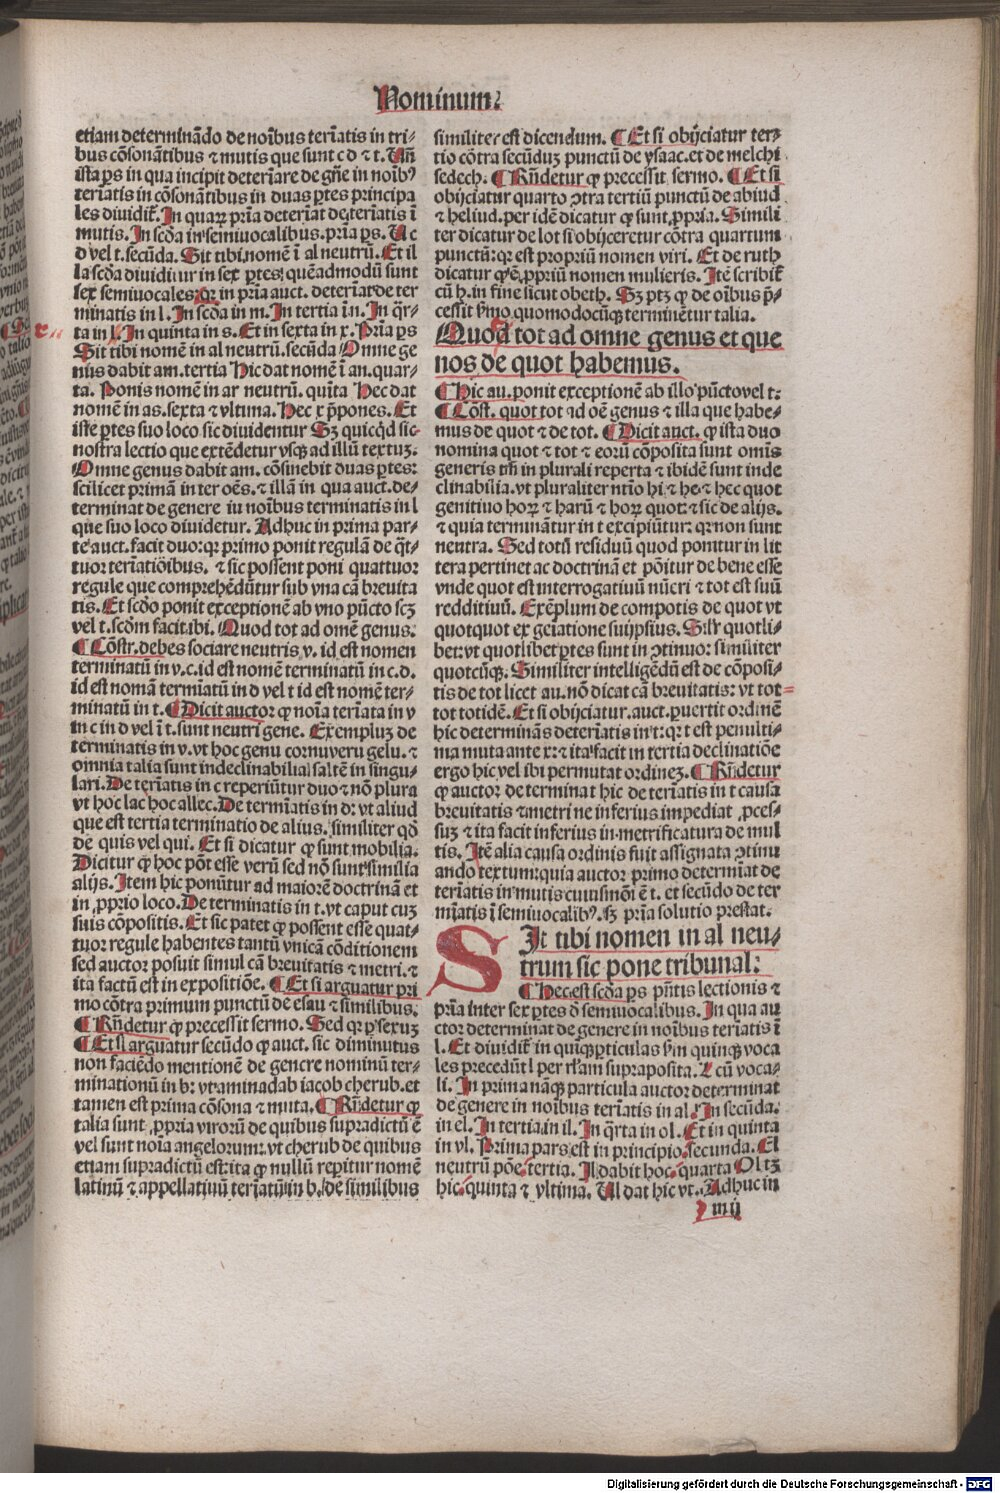 Nominum
etiam determinādo de noībus terīatis in tri-
bus cōsonātibus ⁊ mutis que sunt c d ⁊ t. Vñ
ista ps in qua incipit deteriare de gñe in noībꝰ
teriatis in cōsonātibus in duas ptes principa
les diuidit. In quaꝝ pria deteriat de teriatis ī
mutis. In scđa in semiuocalibus. pria ps. V c
d vel t. secūda. Sit tibi nomē ī al neutrū. Et il
la scđa diuiditur in sex ptes quēadmodū sunt
sex semiuocales: qꝛ in pria auct. deteriat de ter
minatis in l. In scđa in m. In tertia ī n. In q̄r-
ta in r. In quinta in s. Et in sexta in x. Pria ps
Sit tibi nomē in al neutrū. secūda Omne ge
nus dabit am. tertia Hic dat nomē ī an. quar-
ta. Ponis nomē in ar neutrū. quīta Hec dat
nomē in as. sexta ⁊ vltima. Hec x p̄pones. Et
iste ptes suo loco sic diuidentur Sꝫ quicq̄d sic
nostra lectio que extēdetur vsqꝫ ad illū textuꝫ.
Omne genus dabit am. cōtinebit duas ptes:
scilicet primā inter oēs. ⁊ illā in qua auct. de-
terminat de genere in noībus terminatis in l
que suo loco diuidetur. Adhuc in prima par-
te auct. facit duo: qꝛ primo ponit regulā de q̄t-
tuor teriatiōibus. ⁊ sic possent poni quattuor
regule que comprehēdūtur sub vna cā breuita
tis. Et scđo ponit exceptionē ab vno pūcto scꝫ
vel t. scđm facit. ibi. Quod tot ad omē genus.
¶ Cōstr. debes sociare neutris, v. id est nomen
terminatū in v. c. id est nomē terminatū in c. d.
id est nomā termīatū in d vel t id est nomē ter-
minatū in t. ¶ Dicit auctor ꝙ noīa teriata in v
in c in d vel ī t. sunt neutri gene. Exempluꝫ de
terminatis in v. vt hoc genu cornu veru gelu. ⁊
omnia talia sunt indeclinabilia saltē in singu-
lari. De teriatis in c reperiūtur duo ⁊ nō plura
vt hoc lac hoc allec. De termīatis in d: vt aliud
que est tertia terminatio de alius. similiter qđ
de quis vel qui. Et si dicatur ꝙ sunt mobilia.
Dicitur ꝙ hoc pōt esse verū sed nō sunt similia
alijs. Item hic ponūtur ad maiorē doctrinā et
in ꝓprio loco. De terminatis in t. vt caput cuꝫ
suis cōpositis. Et sic patet ꝙ possent esse quat-
tuor regule habentes tantū vnicā cōditionem
sed auctor posuit simul cā breuitatis ⁊ metri. ⁊
ita factū est in expositiōe. ¶ Et si arguatur pri
mo cōtra primum punctū de esau ⁊ similibus.
¶ Rñdetur ꝙ precessit sermo. Sed qꝛ p sexuꝫ
¶ Et si arguatur secūdo ꝙ auct. sic diminutus
non faciēdo mentionē de genere nominū ter-
minationū in b: vt aminadab iacob cherub. et
tamen est prima cōsona ⁊ muta. ¶ Rñdetur ꝙ
talia sunt ꝓpria virorū de quibus supradictū ē
vel sunt noīa angelorum: vt cherub de quibus
etiam supradictū est: ita ꝙ nullū repitur nomē
latinū ⁊ appellatiuū teriatū in b. de similibus
similiter est dicendum. ¶ Et si obijciatur ter-
tio cōtra secūduꝫ punctū de ysaac. et de melchi
sedech. ¶ Rñdetur ꝙ precessit sermo. ¶ Et si
obijciatur quarto ꝯtra tertiū punctū de abiud
⁊ heliud. per idē dicatur ꝙ sunt ꝓpria. Simili
ter dicatur de lot si obijceretur cōtra quartum
punctū: qꝛ est propriū nomen viri. Et de ruth
dicatur ꝙ ē ꝓpriū nomen mulieris. Itē scribit̄
cū h. in fine sicut obeth. Sꝫ ptꝫ ꝙ de oībus p̄-
cessit s̄mo quomodocūqꝫ terminētur talia.
Quod tot ad omne genus et que
nos de quot habemus.
¶ Hic au. ponit exceptionē ab illo pūcto vel t:
¶ Cōst. quot tot ad oē genus ⁊ illa que habe-
mus de quot ⁊ de tot. ¶ Dicit auct. ꝙ ista duo
nomina quot ⁊ tot ⁊ eorū cōposita sunt omīs
generis tm̄ in plurali reperta ⁊ ibidē sunt inde
clinabilia. vt pluraliter ntīo hi ⁊ he ⁊ hec quot
genitiuo hoꝝ ⁊ harū ⁊ hoꝝ quot: ⁊ sic de alijs.
⁊ quia terminātur in t excipiūtur: qꝛ non sunt
neutra. Sed totū residuū quod ponitur in lit
tera pertinet ac doctrinā et pōitur de bene esse
vnde quot est interrogatiuū nūeri ⁊ tot est suū
redditiuū. Exēplum de compotis de quot vt
quotquot ex geiatione suijpsius. Silr quotli-
bet: vt quotlibet ptes sunt in ꝯtinuo: similiter
quotcūqꝫ. Similiter intelligēdū est de cōposi-
tis de tot licet au. nō dicat cā breuitatis: vt tot-
tot totidē. Et si obijciatur. auct. puertit ordinē
hic determinās deteriatis in t: qꝛ t est penulti-
ma muta ante x: ⁊ ita facit in tertia declinatiōe
ergo hic vel ibi permutat ordineꝫ. ¶ Rñdetur
ꝙ auctor determinat hic de teriatis in t causa
breuitatis ⁊ metri ne inferius impediat ꝓces-
suꝫ ⁊ ita facit inferius in metrificatura de mul
tis. Itē alia causa ordinis fuit assignata ꝯtinu
ando textum: quia auctor primo determīat de
teriatis in mutis cuiusmōi ē t. et secūdo de ter
mīatis ī semiuocalibꝰ. sꝫ pria solutio prestat.
SIt tibi nomen in al neu-
trum sic pone tribunal:
¶ Hec est scđa ps pñtis lectionis ⁊
pria inter sex ptes đ semiuocalibus. In qua au
ctor determinat de genere in noībus teriatis ī
l. Et diuidit̄ in quīqꝫ pticulas s̄m quinqꝫ voca
les precedūt l per rl̄am supraposita. Et cū voca-
li. In prima nāqꝫ particula auctor determinat
de genere in noībus teriatis in al. In secūda.
in el. In tertia. in il. In q̄rta in ol. Et in quinta
in vl. Prima pars est in principio. secunda. El
neutrū pōe. tertia. Il dabit hoc. quarta Ol tꝫ
hic. quinta ⁊ vltima. Ul dat hic vt. Adhuc in
iij
Digitalisierung gefördert durch die Deutsche Forschungsgemeinschaft - DFG